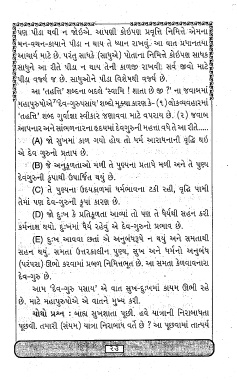 પણ પીડા થવી ન જોઈએ. આપણી કોઈપણ પ્રવૃત્તિ નિમિત્તે એમના
મન-વચન-કાયાને પીડા ન થાય તે ધ્યાન રાખવું. આ વાત પ્રધાનતયા
આચાર્ય માટે છે. પરંતુ સાધકે (સાધુએ) પોતાના નિમિત્તે કોઈપણ સાધક
સાધુને આ રીતે પીડા ન થાય તેની કાળજી રાખવી. સર્વ જીવો માટે
પીડા વર્જ્ય જ છે. સાધુઓને પીડા વિશેષથી વર્જ્ય છે.
આ 'તહત્તિ' શબ્દના બદલે 'સ્વામિ ! શાતા છે જી ?' ના જવાબમાં
મહાપુરુષોએ 'દેવ-ગુરુપસાય' શબ્દ મૂક્યા કારણ કે- (૧) લોકવ્યવહારમાં
'તહત્તિ' શબ્દ ગુર્વાજ્ઞા સ્વીકાર જણાવવા માટે વપરાય છે. (૨) જવાબ
આપનાર અને સાંભળનારના હૃદયમાં દેવગુરુની મહત્તા વધે તે આ રીતે.....
(A) જો સુખમાં કાળ ગયો હોય તો ધર્મ આરાધનાની વૃદ્ધિ થઈ
એ દેવ ગુરુનો પ્રતાપ છે.
(B) જે અનુકૂળતાઓ મળી તે પુણ્યના પ્રતાપે મળી અને તે પુણ્ય
દેવગુરુની કૃપાથી ઉપાર્જિત થયું છે.
(C) તે પુણ્યના ઉદયકાળમાં ધર્મભાવના ટકી રહી, વૃદ્ધિ પામી
તેમાં પણ દેવ-ગુરુની કૃપા કારણ છે.
(D) જો દુઃખ કે પ્રતિકૂળતા આવ્યાં તો પણ તે ધૈર્યથી સહન કરી
કર્મનાશ થયો. દુઃખમાં ધૈર્ય રહ્યું એ દેવ-ગુરુનો પ્રભાવ છે.
(E) દુઃખ આવવા છતાં એ અનુબંધરૂપે ન થયું અને સમતાથી
સહન થયું. સમતા ઉત્તરકાલીન પુણ્ય, સુખ અને ધર્મનો અનુબંધ
(પરંપરા) ઊભો કરવામાં પ્રબળ નિમિત્તભૂત છે. આ સમતા કેળવાવનારા
દેવ-ગુરુ છે.
આમ 'દેવ-ગુરુ પસાય' એ વાત સુખ-દુઃખમાં કાયમ ઊભી રહે
છે. માટે મહાપુરુષોએ એ વાતને મુખ્ય કરી.
ચોથો પ્રશ્ન : બાહ્ય સુખશાતા પૂછી. હવે યાત્રાની નિરાબાધતા
પૂછવી. તમારી (સંયમ) યાત્રા નિરાબાધ વર્તે છે ? આ પૂછવામાં તાત્પર્ય